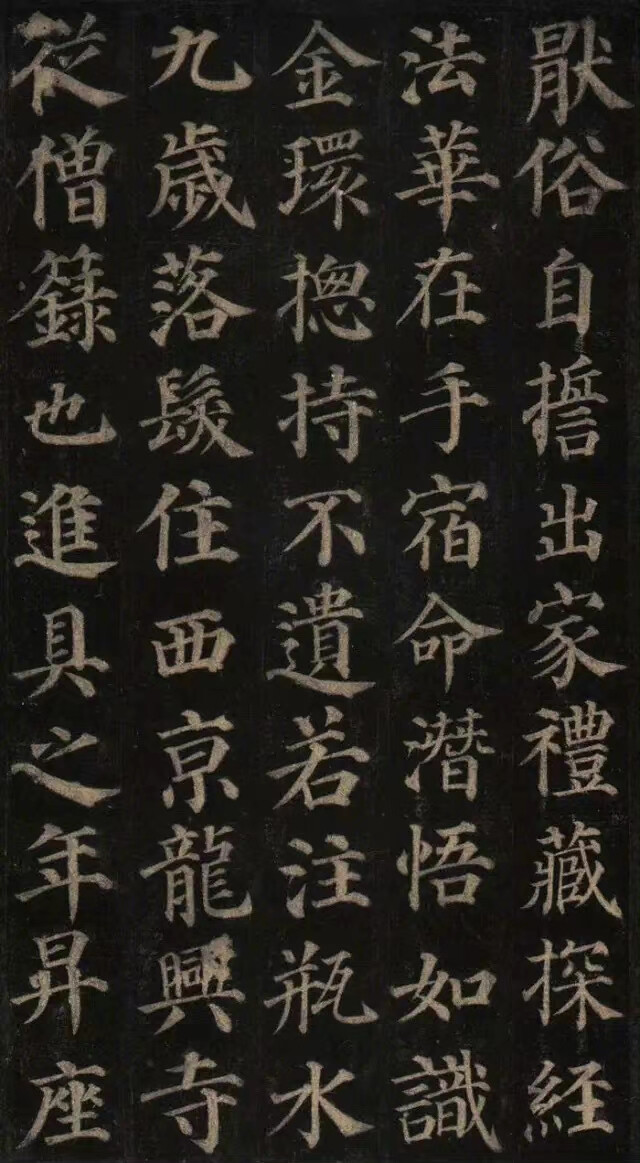 猒俗自誓出家禮藏探経
法華在手宿命潛悟如識
金環揔持不遺若注瓶水
九歲落髮住西京龍興寺
從僧籙也進具之年昇座